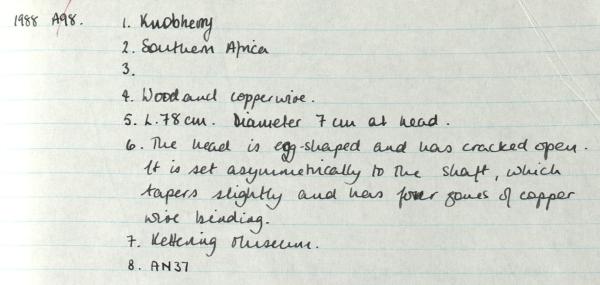 1988 A98. 1. Knobkerry
2. Southern Africa
3.
4. Wood and copper wire.
5. L. 78 cm. Diameter 7 cm at head.
6. The head is egg-shaped and has cracked open.
It is set asymmetrically to the shaft, which
tapers slightly and has four zones of copper
wire binding.
7. Kettering Museum.
8. AN37